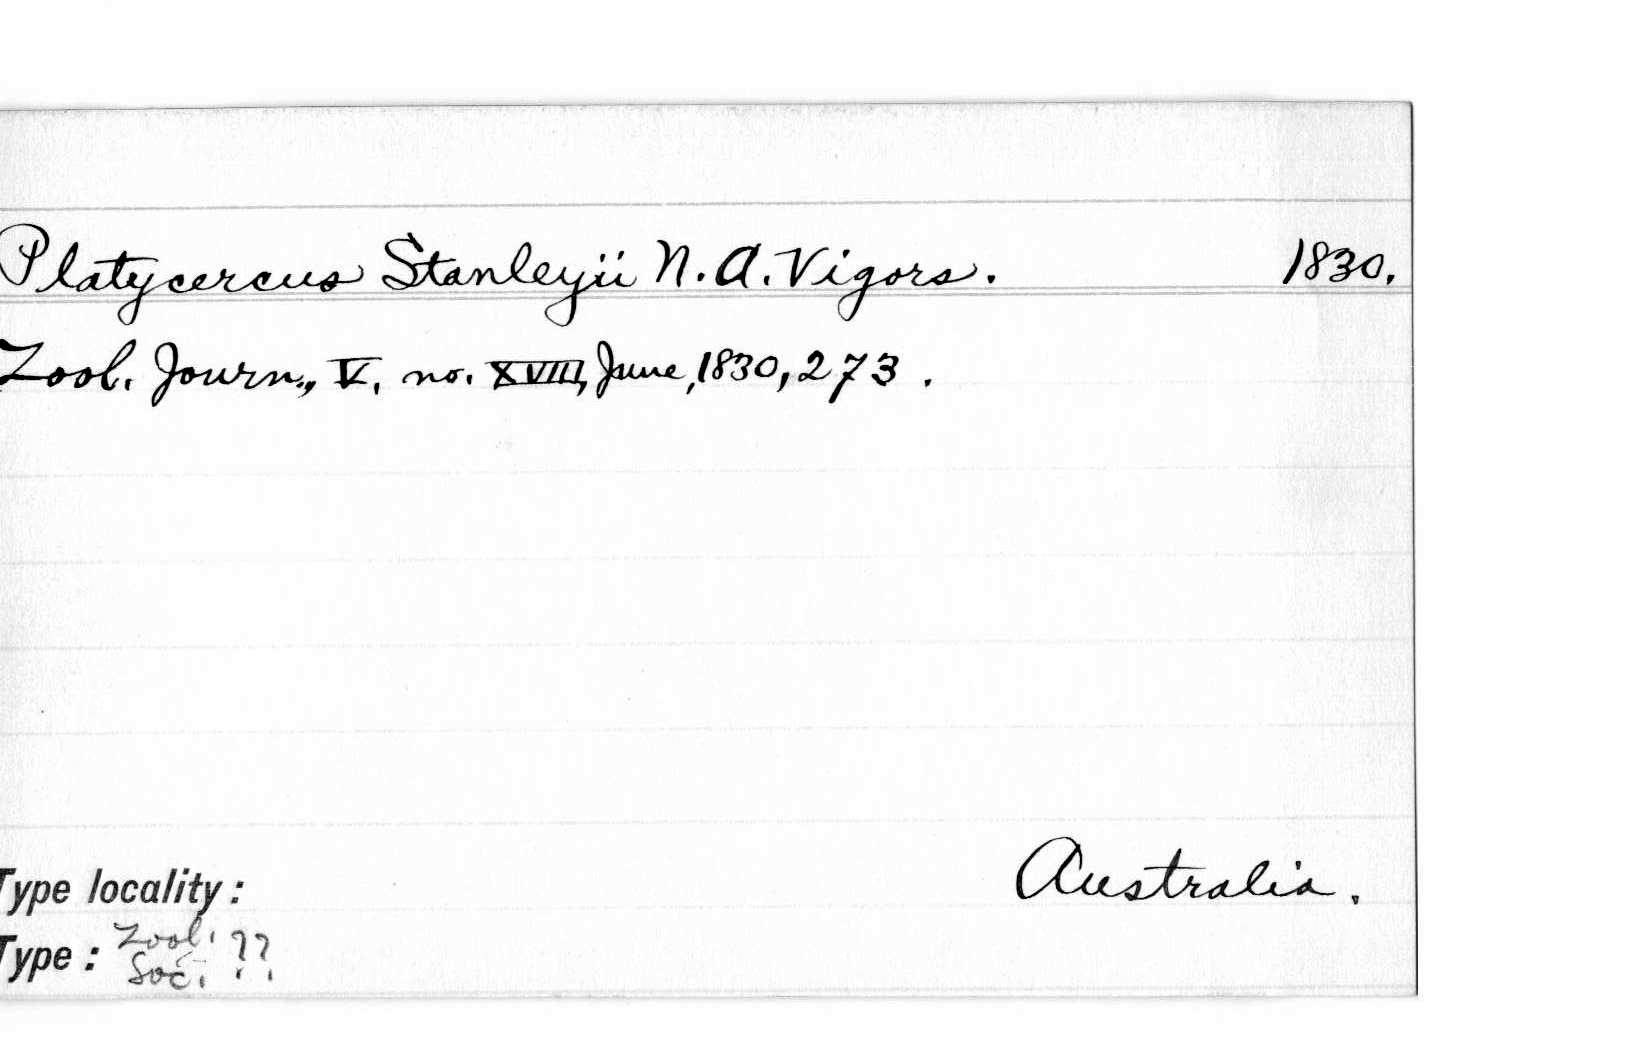 Platycercus Stanleyii N. A. Vigors. 1830.
Zool. Journ., V, no. XVIII, June, 1830, 273.
Australia.
Type locality:
Type: Zool. Soc. ??